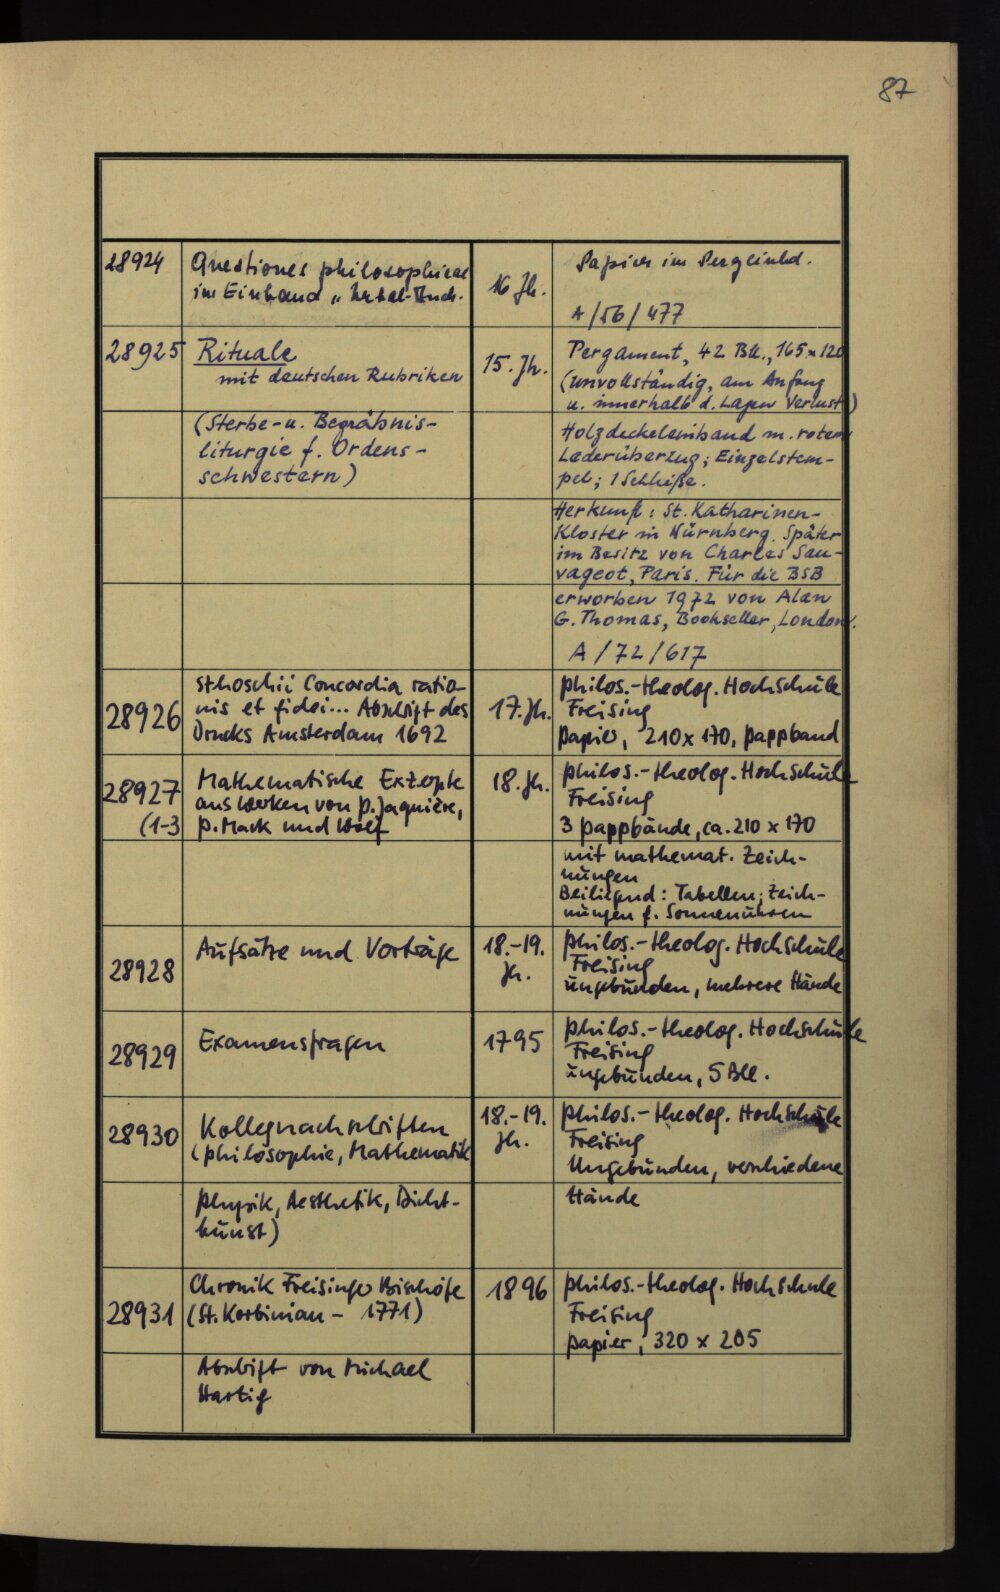 87
28924
Questiones philosophicae
im Einband
16 Jh.
Papier im Pergeinbd.
A/56/477
28925
Rituale
mit deutschen Rubriken
(Sterbe- u. Begräbnis-
liturgie f. Ordens-
schwestern)
15. Jh.
Pergament, 42 Bll., 165 x 120
(unvollständig, am Anfang
u. innerhalb d. Lagen Verlust)
Holzdeckeleinband m. rotem
Lederüberzug; Einzelstem-
pel; 1 Schließe.
Herkunft: St. Katharinen-
Kloster in Nürnberg. Später
im Besitz von Charles Sau-
vageot, Paris. Für die BSB
erworben 1972 von Alan
G. Thomas, Bookseller, London.
A/72/617
28926
Sthoschii Concordia ratio-
nis et fidei... Abschrift des
Drucks Amsterdam 1692
17. Jh.
Philos.-theolog. Hochschule
Freising
Papier, 210 x 170, Pappband
28927
(1-3
Mathematische Exzerpte
aus Werken von P. Jaquière,
P. Mack und Wolf
18. Jh.
Philos.-theolog. Hochschule
Freising
3 Pappbände, ca. 210 x 170
mit mathemat. Zeich-
nungen
Beiliegend: Tabellen; Zeich-
nungen f. Sonnenuhren
28928
Aufsätze und Vorträge
18.-19.
Jh.
Philos.-theolog. Hochschule
Freising
ungebunden, mehrere Hände
28929
Examensfragen
1795
Philos.-theolog. Hochschule
Freising
ungebunden, 5 Bll.
28930
Kollegnachschriften
(Philosophie, Mathematik
Physik, Aesthetik, Dicht-
kunst)
18.-19.
Jh.
Philos.-theolog. Hochschule
Freising
Ungebunden, verschiedene
Hände
28931
Chronik Freisinger Bischöfe
(St. Korbinian - 1771)
Abschrift von Michael
Hartig
1896
Philos.-theolog. Hochschule
Freising
Papier, 320 x 205